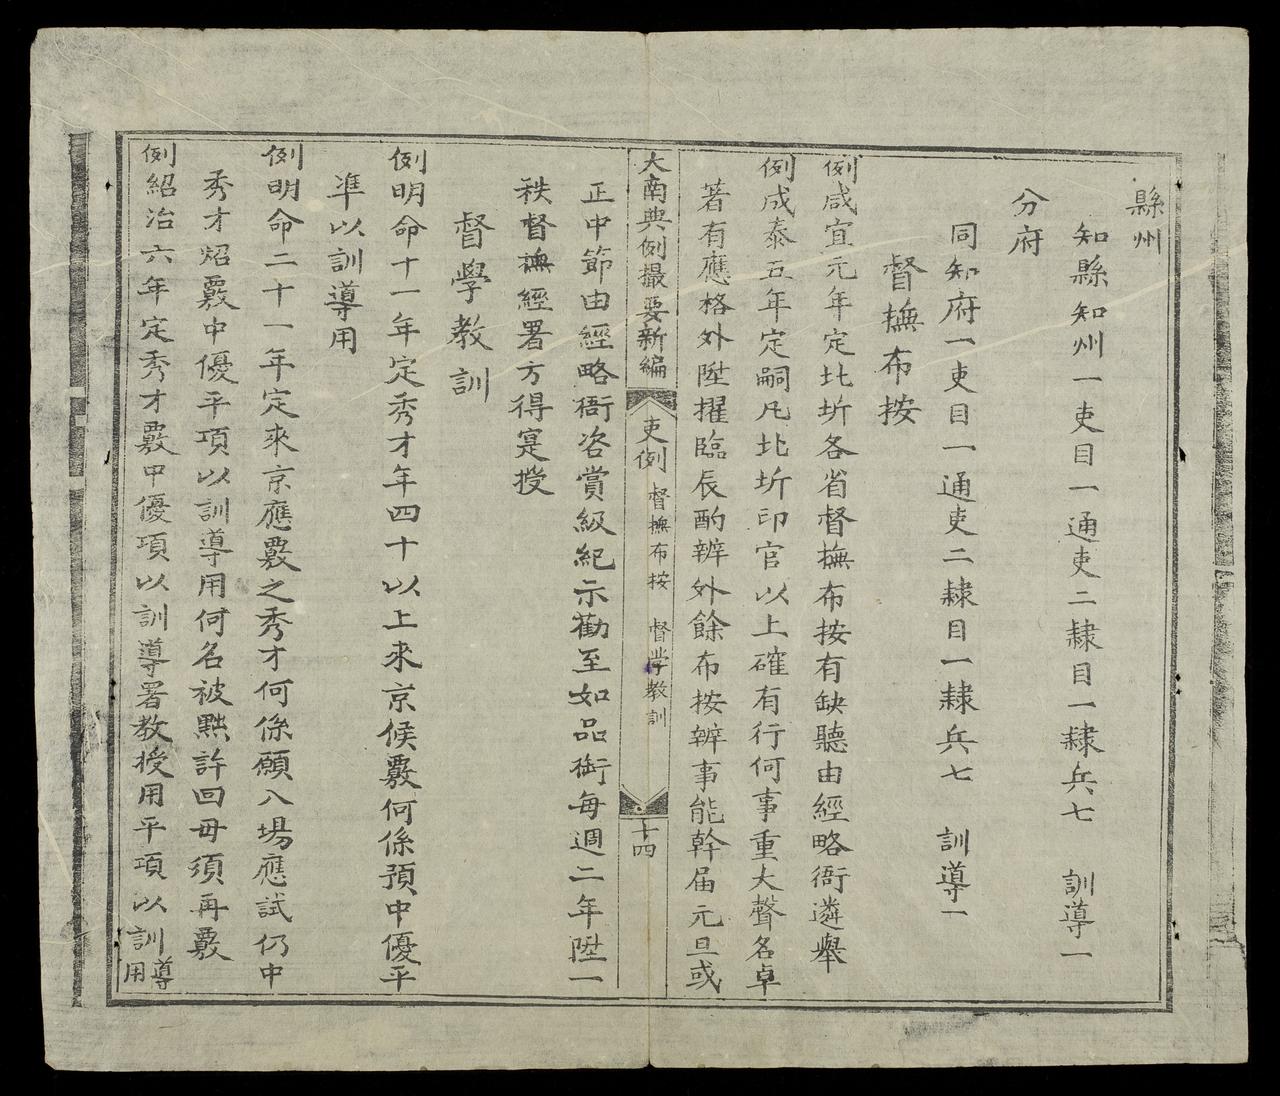 縣州
知縣知州一吏目一通吏二隸目一隸兵七 訓導一
分府
同知府一吏目一通吏二隸目一隸兵七 訓導一
督撫布按
例咸宜元年定北圻各省督撫布按有缺聽由經略衙遴舉
例成泰五年定嗣凡北圻印官以上確有行何事重大聲名卓
著有應格外陞擢臨辰酌辦外餘布按辦事能幹届元旦或
大南典例撮要新編 吏例 督撫布按 督学教訓 十四
正中節由經略衙咨賞級紀示勸至如品銜每週二年陞一
秩督撫經署方得寔授
督學教訓
例明命十一年定秀才年四十以上來京候覈何係預中優平
準以訓導用
例明命二十一年定來京應覈之秀才何係願入場應試仍中
秀才炤覈中優平項以訓導用何名被黜許回毋須再覈
例紹治六年定秀才覈中優項以訓導署教授用平項以訓導用